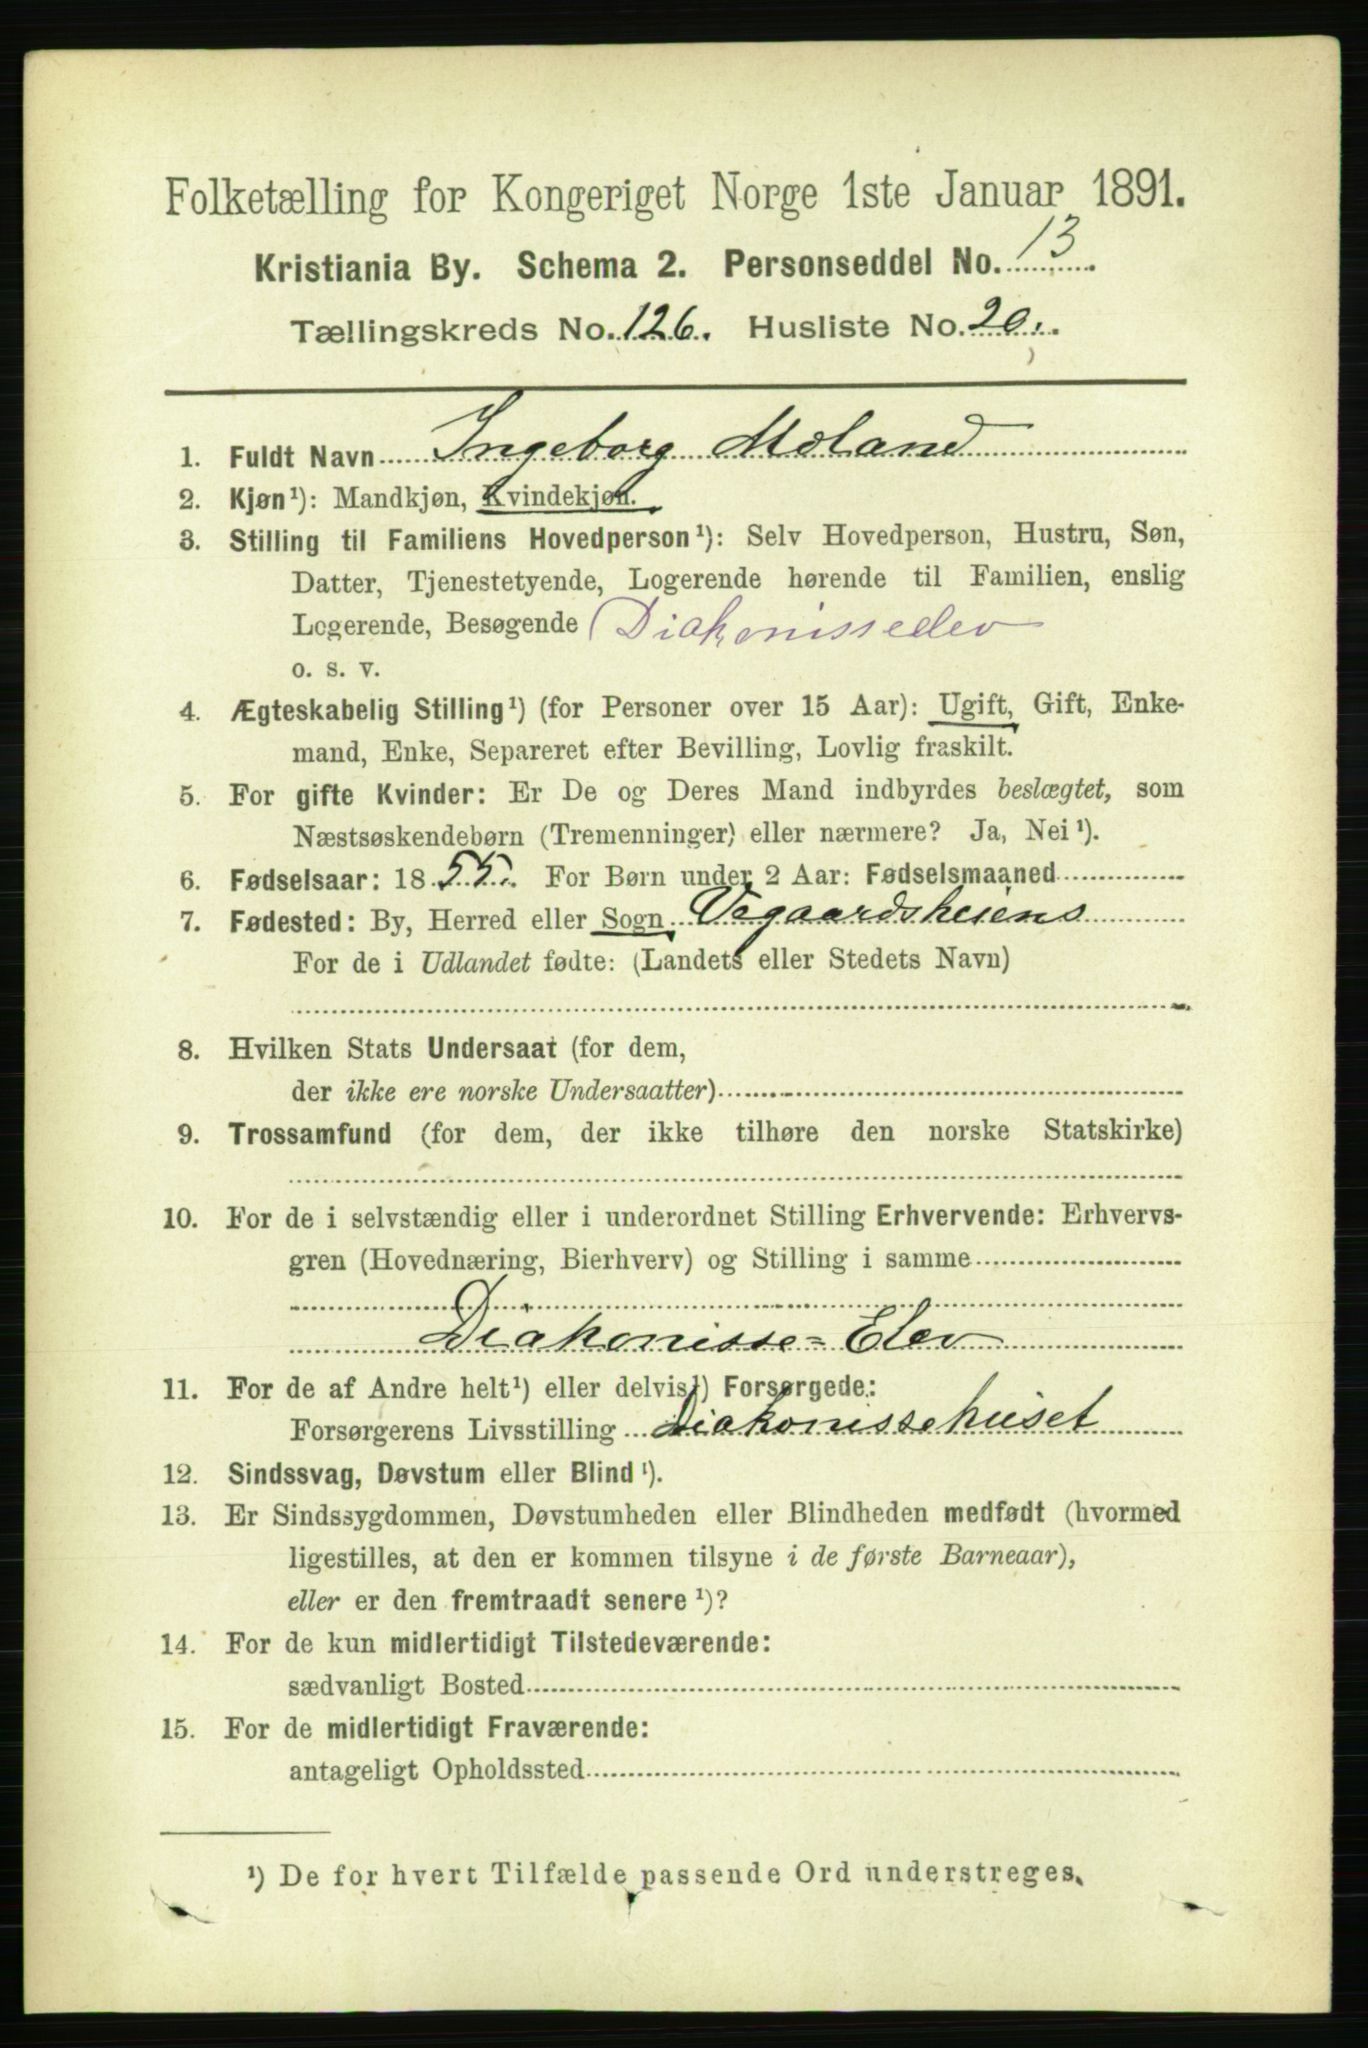 Folketælling for Kongeriget Norge 1ste Januar 1891.
Kristiania By. Schema 2. Personseddel No. 13
Tællingskreds No. 126. Husliste No. 20.
1. Fuldt Navn Ingeborg Moland
2. Kjøn¹): Mandkjøn, Kvindekjøn.
3. Stilling til Familiens Hovedperson¹): Selv Hovedperson, Hustru, Søn,
Datter, Tjenestetyende, Logerende hørende til Familien, enslig
Logerende, Besøgende (Diakonisseelev
o. s. v.
4. Ægteskabelig Stilling¹) (for Personer over 15 Aar): Ugift, Gift, Enke-
mand, Enke, Separeret efter Bevilling, Lovlig fraskilt.
5. For gifte Kvinder: Er De og Deres Mand indbyrdes beslægtet, som
Næstsøskendebørn (Tremenninger) eller nærmere? Ja, Nei¹).
6. Fødselsaar: 1855. For Børn under 2 Aar: Fødselsmaaned
7. Fødested: By, Herred eller Sogn Vegaardsheiens
For de i Udlandet fødte: (Landets eller Stedets Navn)
8. Hvilken Stats Undersaat (for dem,
der ikke ere norske Undersaatter)
9. Trossamfund (for dem, der ikke tilhøre den norske Statskirke)
10. For de i selvstændig eller i underordnet Stilling Erhvervende: Erhvervs-
gren (Hovednæring, Bierhverv) og Stilling i samme
Diakonisse=Elev
11. For de af Andre helt¹) eller delvis¹) Forsørgede:
Forsørgerens Livsstilling Diakonissehuset
12. Sindssvag, Døvstum eller Blind¹).
13. Er Sindssygdommen, Døvstumheden eller Blindheden medfødt (hvormed
ligestilles, at den er kommen tilsyne i de første Barneaar),
eller er den fremtraadt senere¹)?
14. For de kun midlertidigt Tilstedeværende:
sædvanligt Bosted
15. For de midlertidigt Fraværende:
antageligt Opholdssted
¹) De for hvert Tilfælde passende Ord understreges.